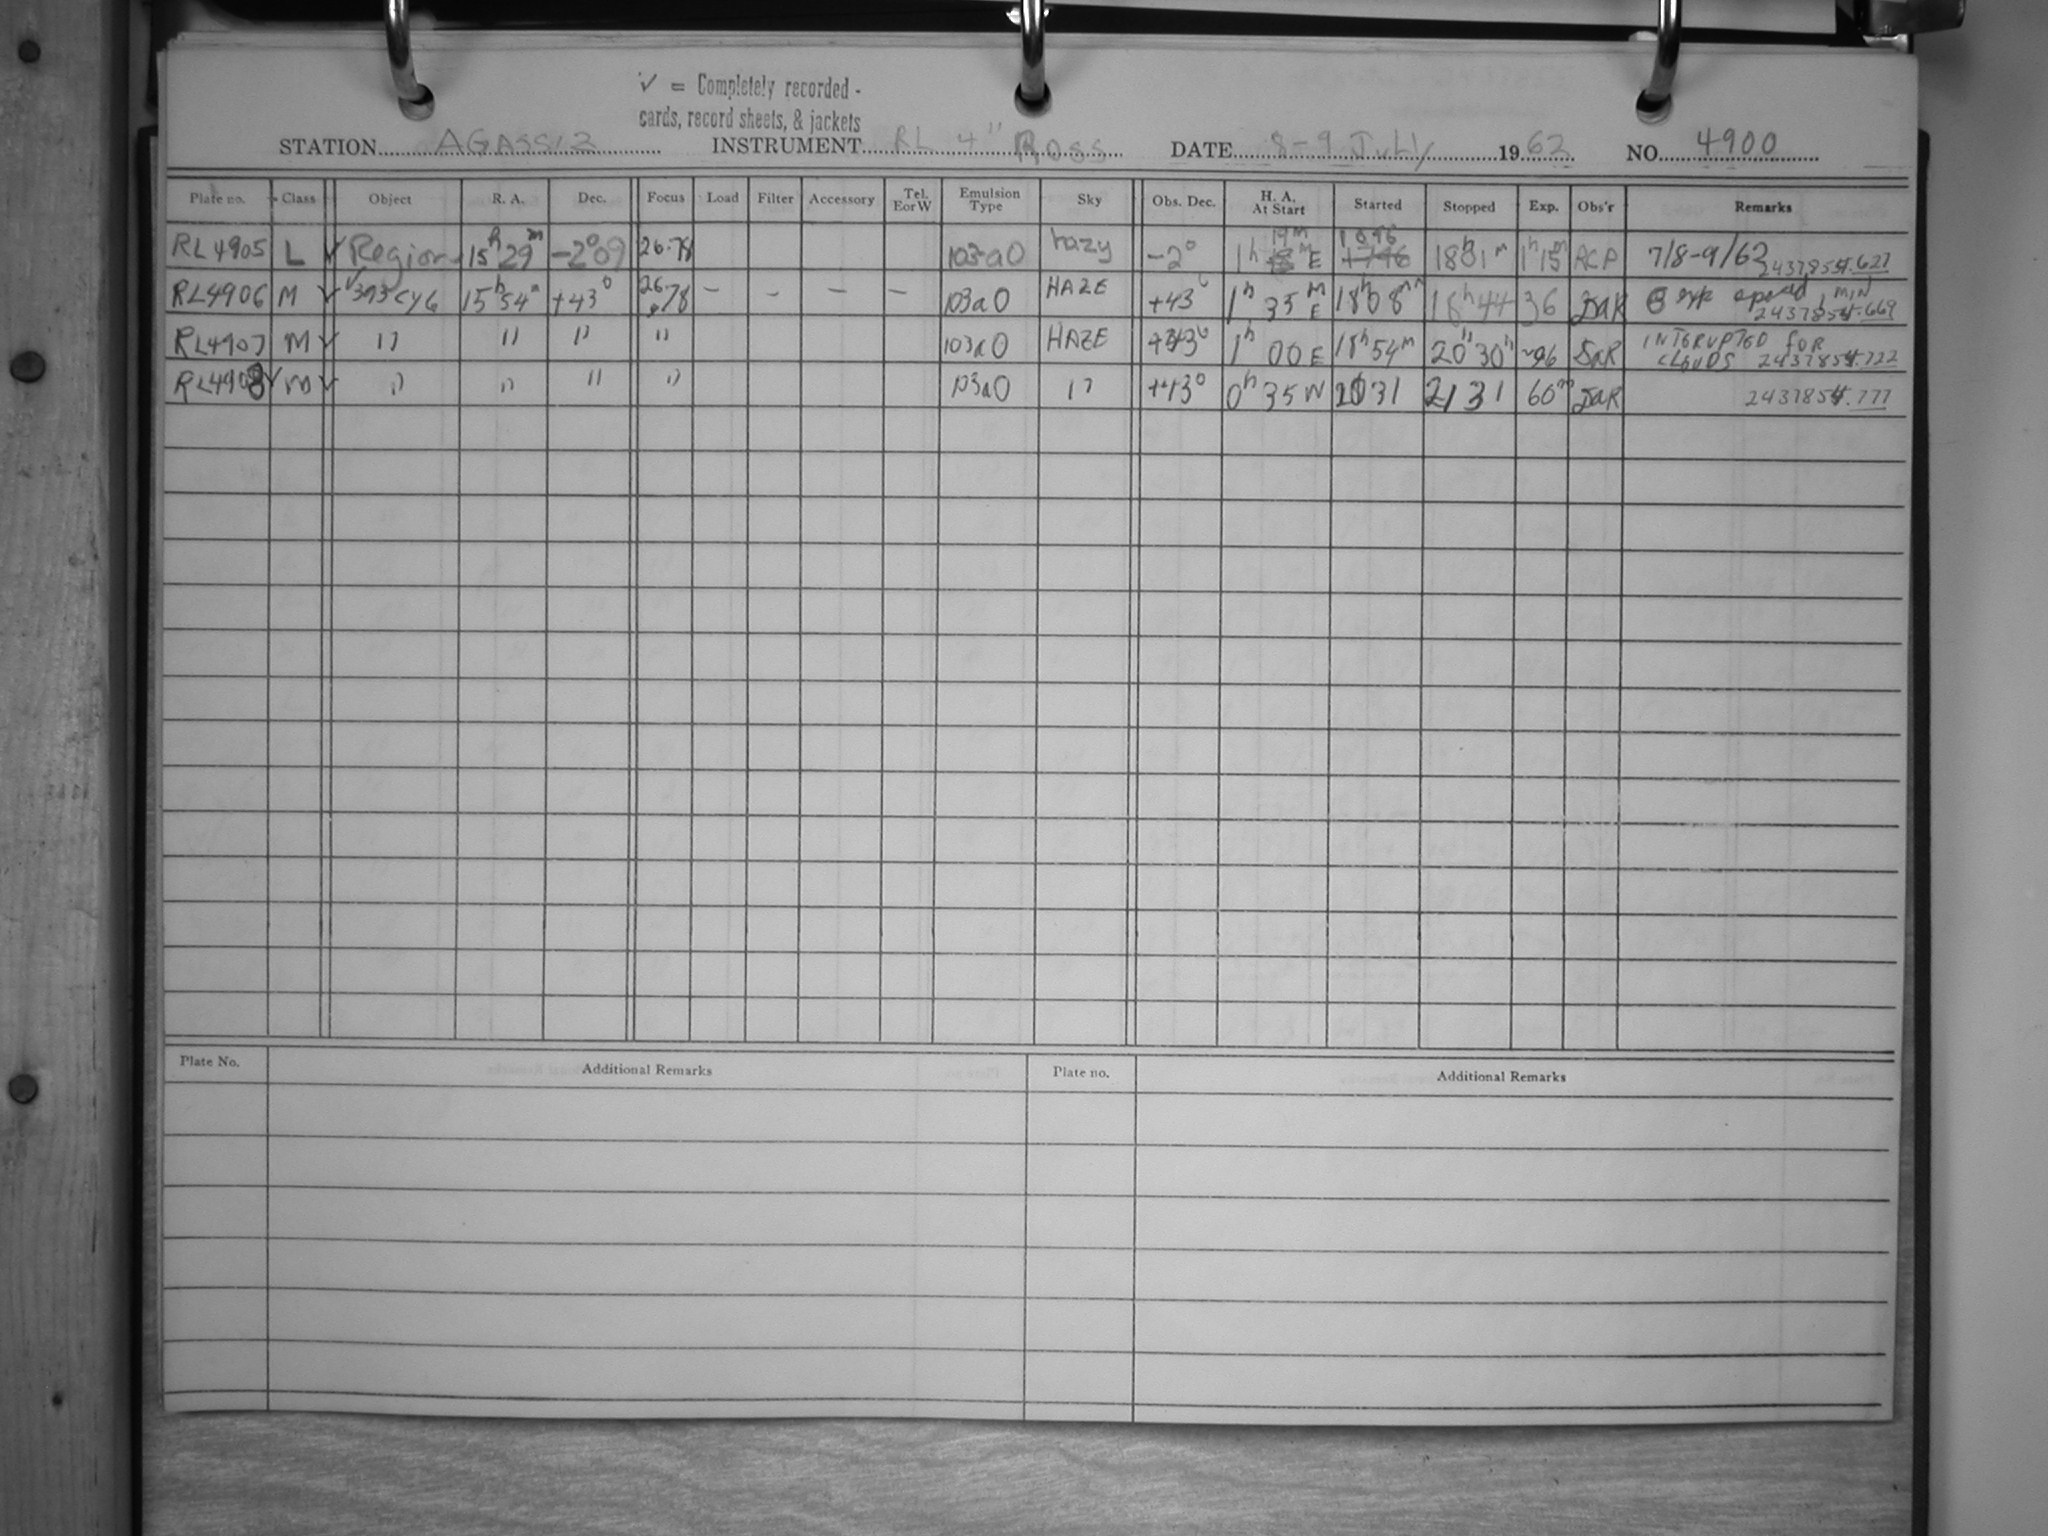 ✓ = Completely recorded -
cards, record sheets, & jackets
STATION AGASSIZ INSTRUMENT RL 4" ROSS DATE 8-9 JULY 1962 NO. 4900
Plate no. Class Object R. A. Dec. Focus Load Filter Accessory Tel. E or W Emulsion Type Sky Obs. Dec. H. A. At Start Started Stopped Exp. Obs'r Remarks
RL4905 L ✓ Region 15h 29m -2°09 26.78 103aO hazy -2° 1h 19m E 1646 18h01m 1h15m RCP 7/8-9/62 2437854.627
RL4906 M ✓ ✓ CYG 15h54m +43° 26.78 - - - - 103aO HAZE +43° 1h 35m E 18h08m 18h44 36 JaR opened 1 MIN 2437854.669
RL4907 M ✓ " " " " 103aO HAZE +43° 1h 00 E 18h54m 20h30m 96 JaR INTERUPTED FOR CLOUDS 2437854.722
RL4908 ✓ M ✓ " " " " 103aO " +43° 0h 35 W 2031 2131 60m JaR 2437854.777
Plate No. Additional Remarks Plate no. Additional Remarks